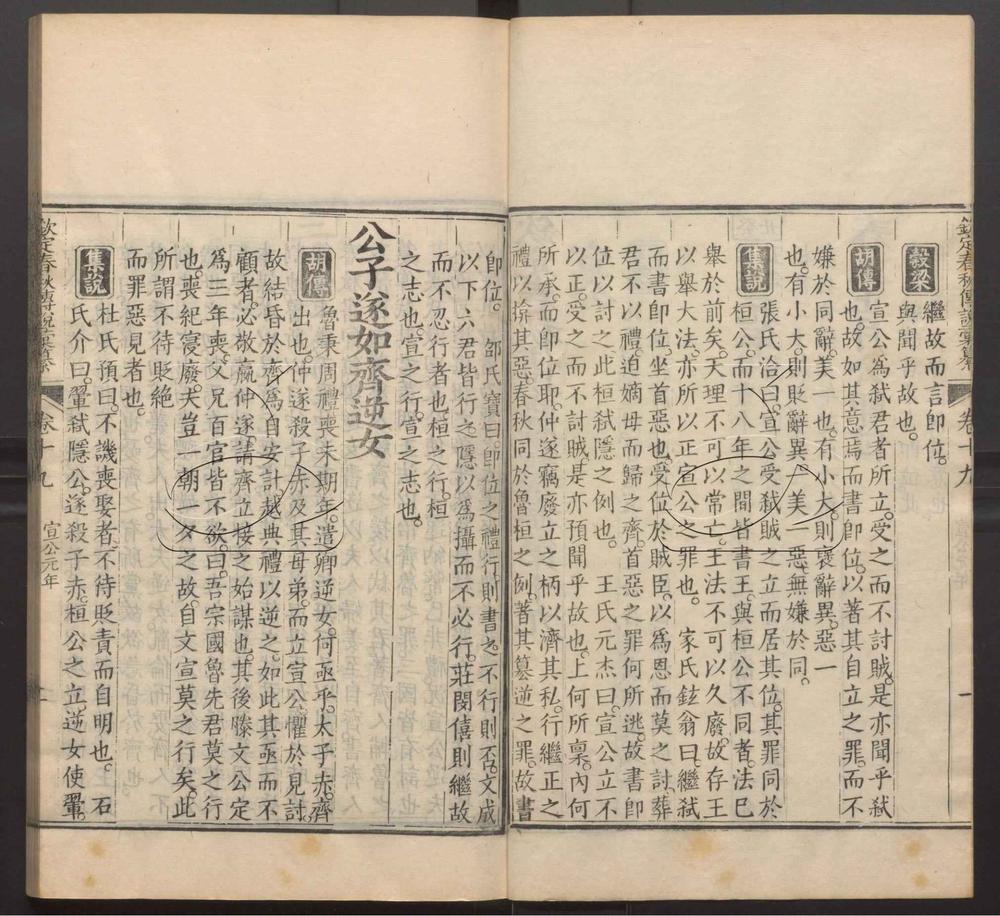 欽定春秋傳說彙纂
卷十九
一
穀梁
繼故而言即位。
與聞乎故也。
胡傳
宣公爲弒君者所立。受之而不討賊。是亦聞乎弒
也。故如其意焉而書即位。以著其自立之罪。而不
嫌於同辭。美一也。有小大。則褒辭異。惡一
也。有小大。則貶辭異。一美一惡。無嫌於同。
集說
張氏洽曰。宣公受弒賊之立而居其位。其罪同於
桓公。而十八年之間皆書王。與桓公不同者。法已
舉於前矣。天理不可以常亡。王法不可以久廢。故存王
以舉大法。亦所以正宣公之罪也。 家氏鉉翁曰。繼弒
而書即位。坐首惡也。受位於賊臣。以爲恩而莫之討。葬
君不以禮。迫嫡母而歸之齊。首惡之罪何所逃。故書即
位以討之。此桓弒隱之例也。 王氏元杰曰。宣公立不
以正。受之而不討賊。是亦預聞乎故也。上何所稟。內何
所承。而即位耶。仲遂竊廢立之柄以濟其私。行繼正之
禮以揜其惡。春秋同於魯桓之例。著其篡逆之罪。故書
即位。 邵氏寶曰。即位之禮。行則書之。不行則否。文成
以下六君皆行之。隱以爲攝而不必行。莊閔僖則繼故
而不忍行者也。桓之行。桓
之志也。宣之行。宣之志也。
公子遂如齊逆女
胡傳
魯秉周禮。喪未期年。遣卿逆女。何亟乎。太子赤。齊
出也。仲遂殺子赤及其母弟。而立宣公。懼於見討。
故結昏於齊。爲自安計。越典禮以逆之。如此其亟而不
顧者。必敬嬴仲遂。請齊立接之始謀也。其後滕文公定
爲三年喪。父兄百官皆不欲。曰。吾宗國魯先君莫之行
也。喪紀寖廢。夫豈一朝一夕之故。自文宣莫之行矣。此
所謂不待貶絕
而罪惡見者也。
集說
杜氏預曰。不譏喪娶者。不待貶責而自明也。 石
氏介曰。翬弒隱公。遂殺子赤。桓公之立。逆女使翬。
欽定春秋傳說彙纂
卷十九
宣公元年
二